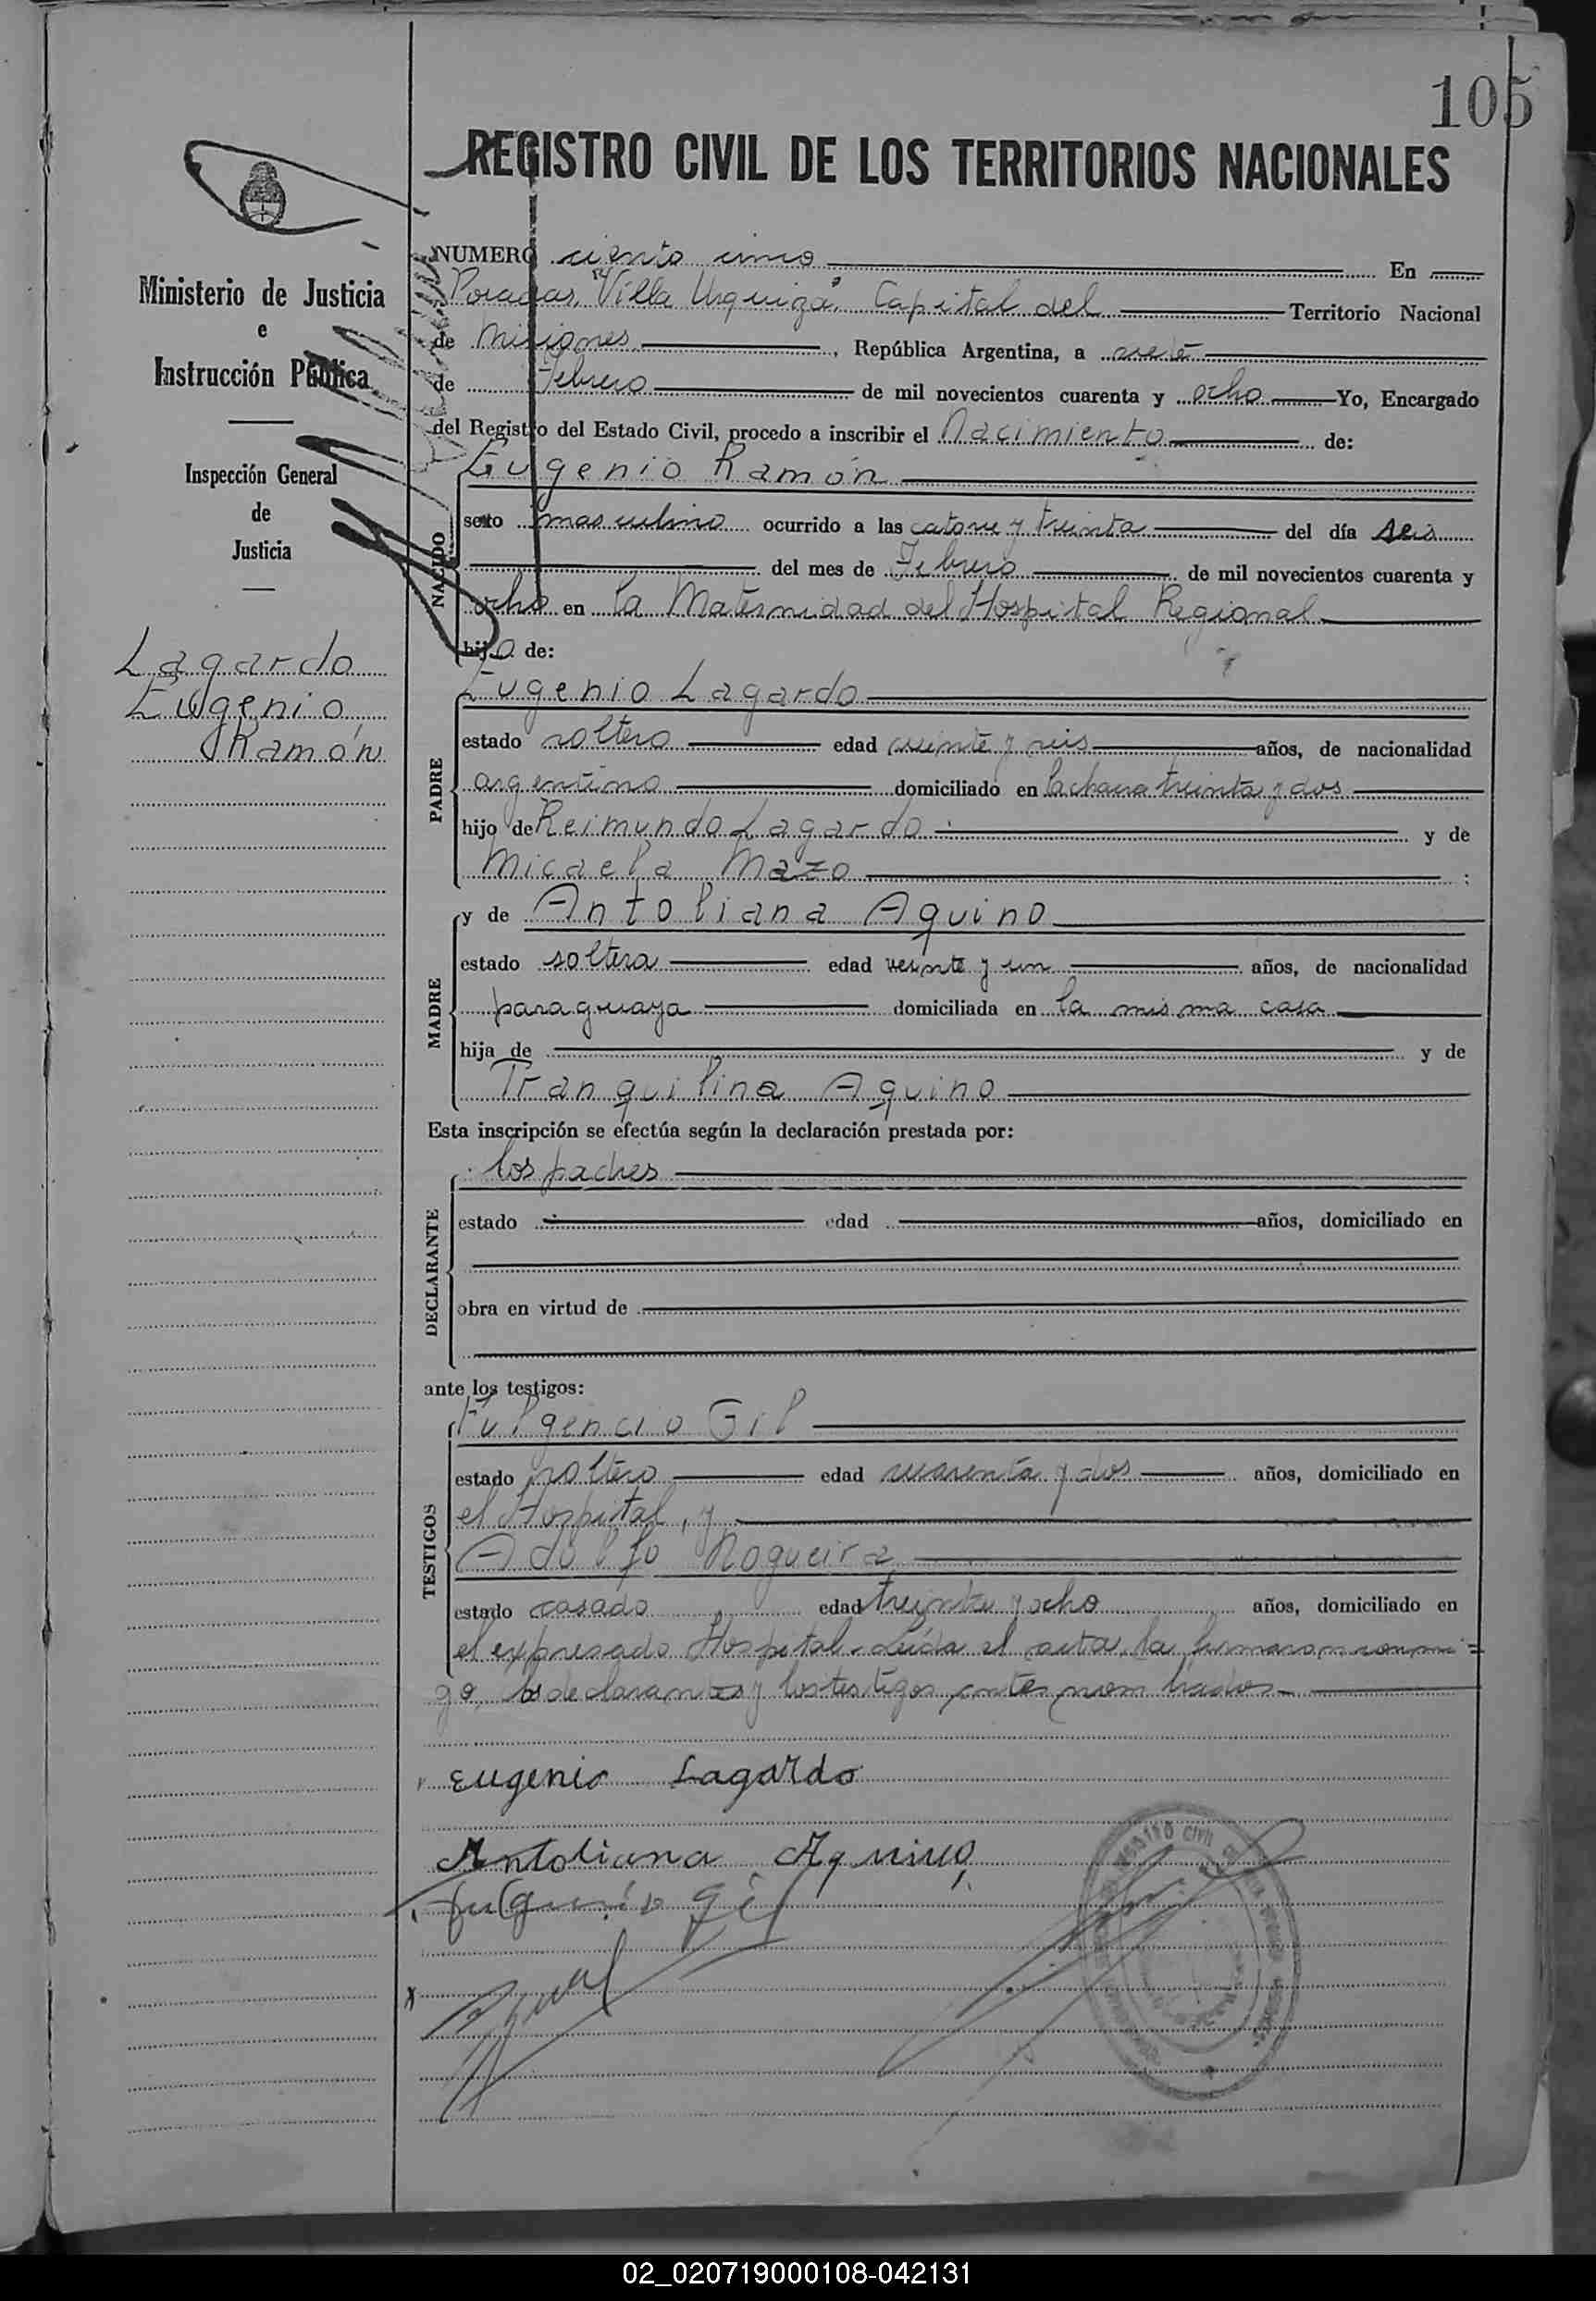 105
REGISTRO CIVIL DE LOS TERRITORIOS NACIONALES
Ministerio de Justicia
e
Instrucción Pública
Inspección General
de
Justicia
Lagardo
Eugenio
Ramón
NUMERO ciento cinco En
Posadas, "Villa Urquiza", Capital del Territorio Nacional
de Misiones, República Argentina, a siete
de Febrero de mil novecientos cuarenta y ocho Yo, Encargado
del Registro del Estado Civil, procedo a inscribir el Nacimiento de:
NACIDO
Eugenio Ramón
sexo masculino ocurrido a las catorce y treinta del día seis
del mes de Febrero de mil novecientos cuarenta y
ocho en la Maternidad del Hospital Regional
hijo de:
PADRE
Eugenio Lagardo
estado soltero edad veinte y seis años, de nacionalidad
argentino domiciliado en la chacra treinta y dos
hijo de Reimundo Lagardo y de
Micaela Mazo ;
MADRE
y de Antoliana Aquino
estado soltera edad veinte y un años, de nacionalidad
paraguaya domiciliada en la misma casa
hija de y de
Tranquilina Aquino
Esta inscripción se efectúa según la declaración prestada por:
DECLARANTE
los padres
estado edad años, domiciliado en
obra en virtud de
ante los testigos:
TESTIGOS
Fulgencio Gil
estado soltero edad cuarenta y dos años, domiciliado en
el Hospital, y
Adolfo Nogueira
estado casado edad treinta y ocho años, domiciliado en
el expresado Hospital. Leída el acta, la firmaron conmi=
go, los declarantes y los testigos antes nombrados.-
Eugenio Lagardo
Antoliana Aquino
Fulgencio Gil
REGISTRO CIVIL
02_020719000108-042131